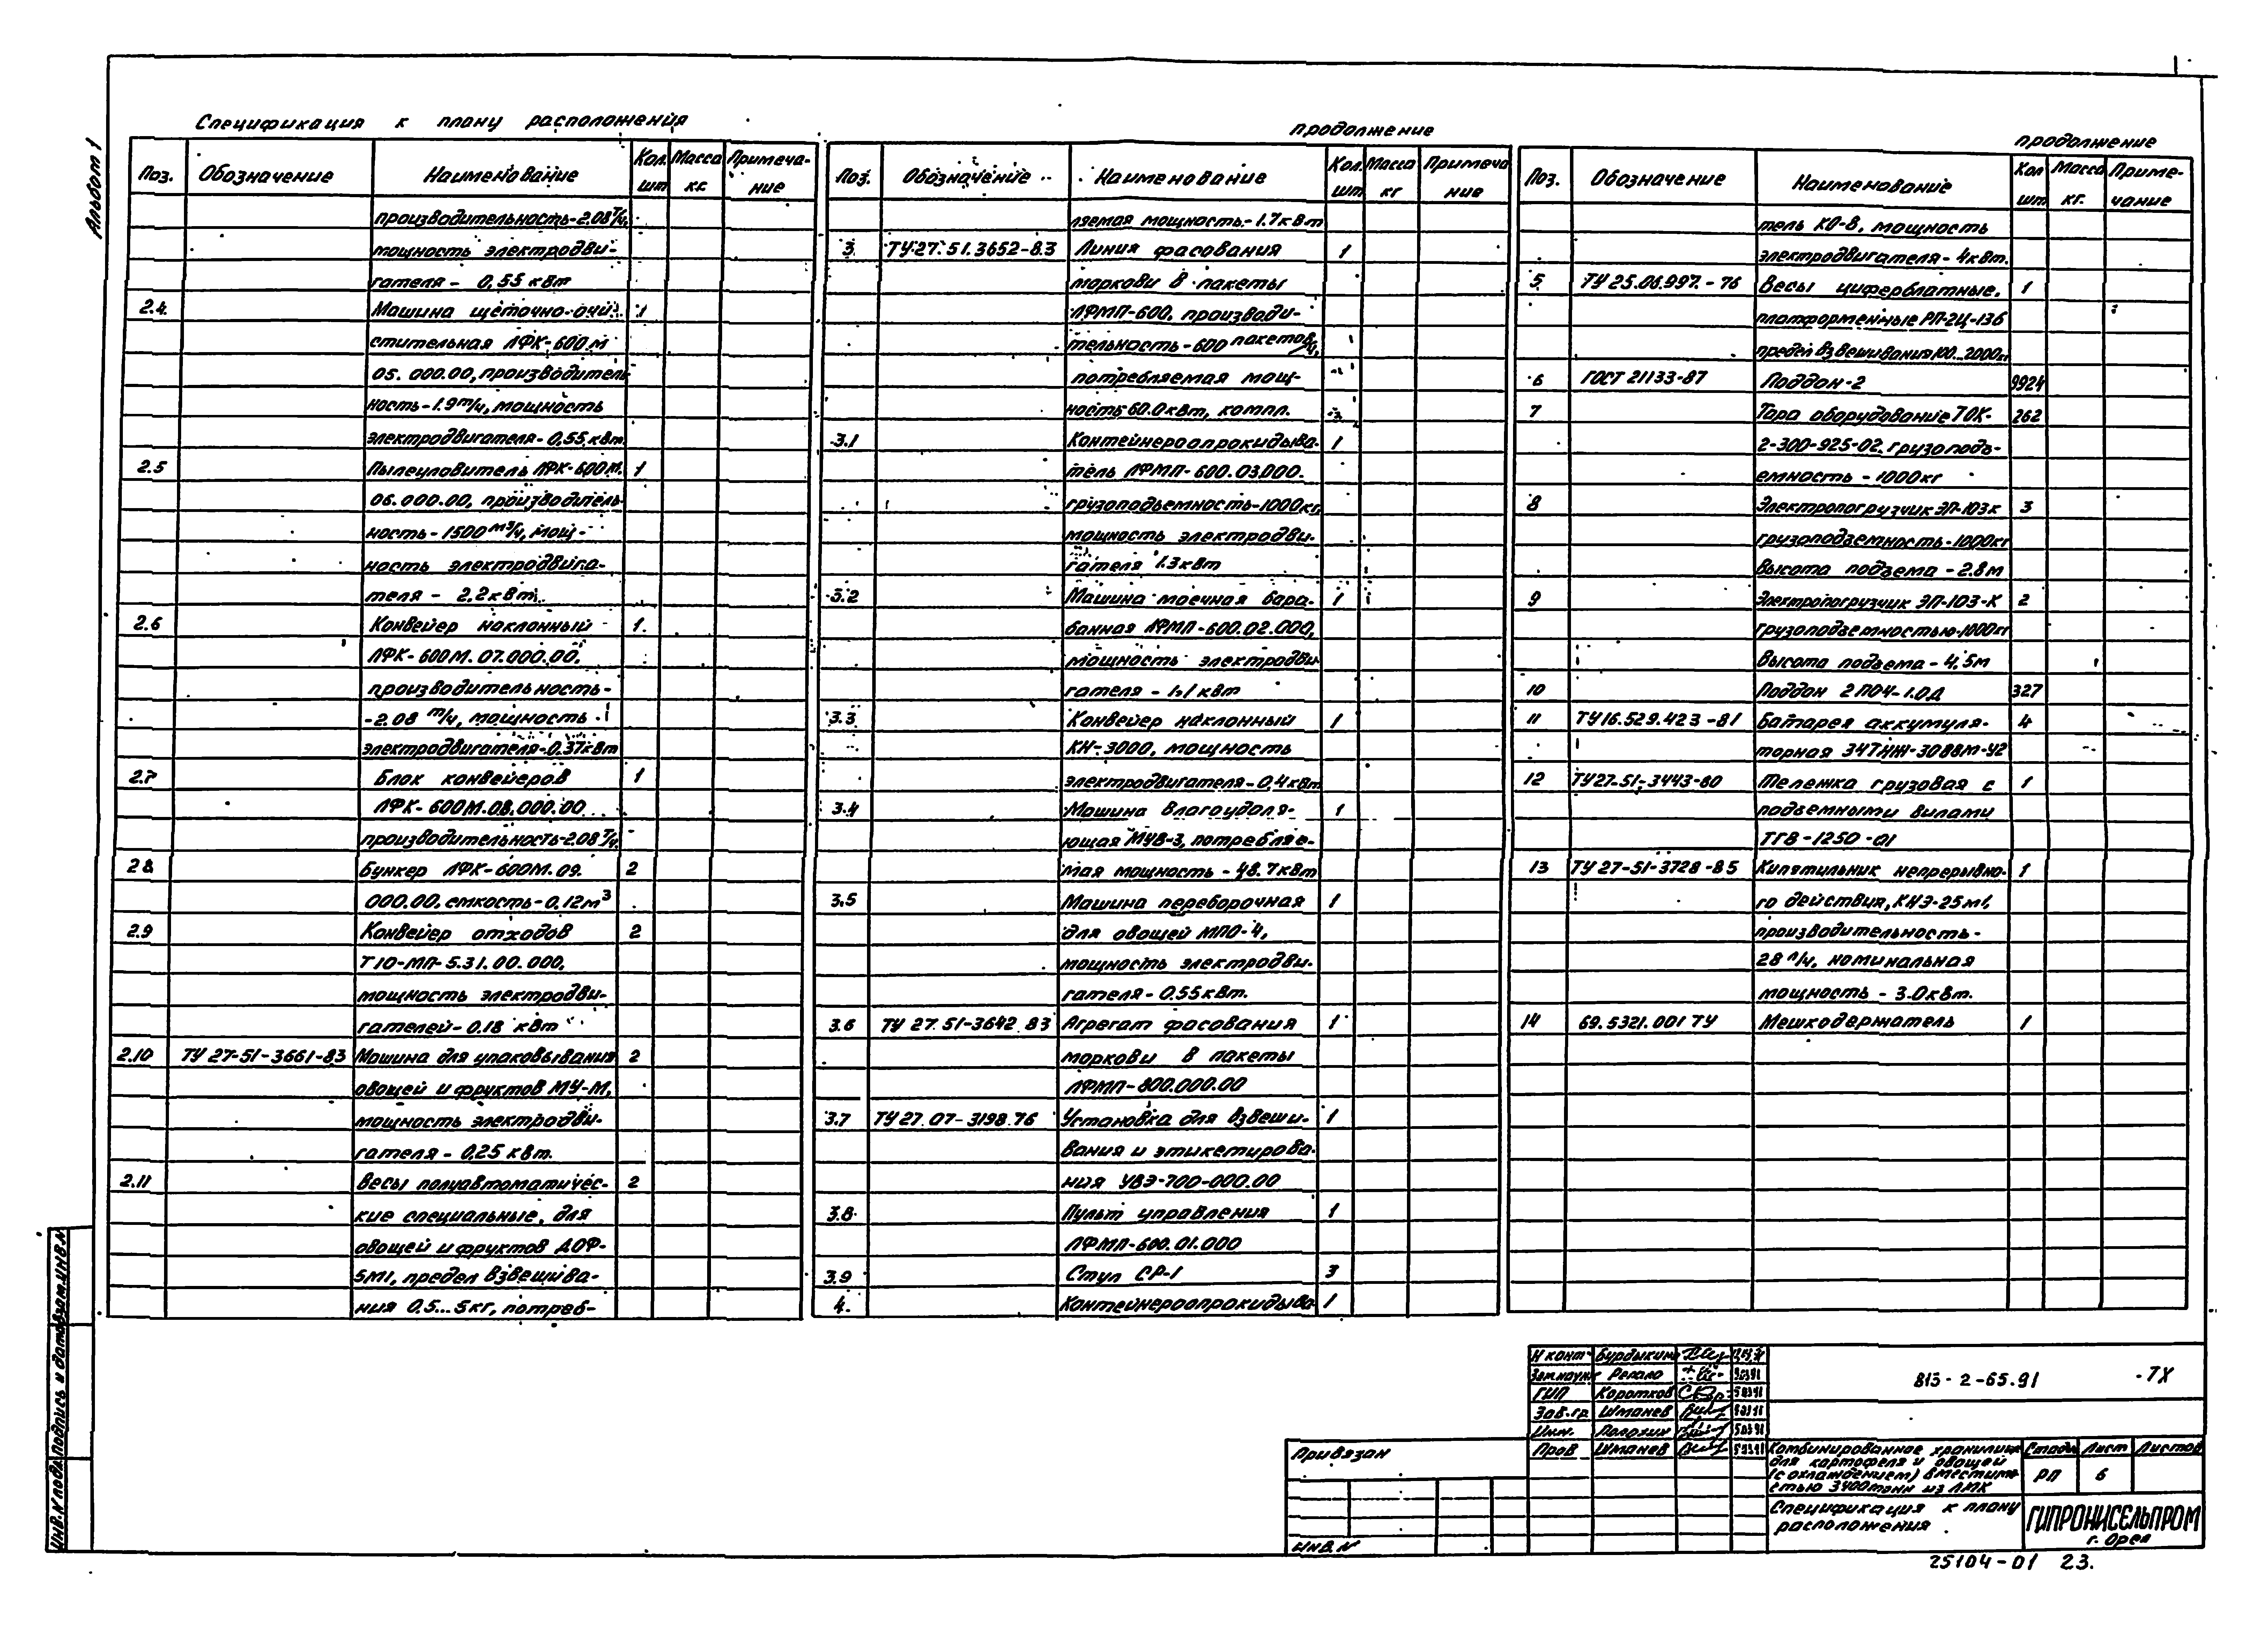 Альбом 1
Спецификация к плану расположения
Поз. Обозначение Наименование Кол. шт Масса кг. Примечание
производительность-2.08 т/ч,
мощность электродви-
гателя - 0,55 кВт
2.4. Машина щеточно-очи- 1
стительная ЛФК-600М
05.000.00, производитель
ность-1.9 т/ч, мощность
электродвигателя-0,55 кВт
2.5 Пылеуловитель ЛФК-600М. 1
06.000.00, производитель
ность-1500 м³/ч, мощ-
ность электродвига-
теля - 2.2 кВт.
2.6 Конвейер наклонный 1
ЛФК-600М.07.000.00,
производительность-
-2.08 т/ч, мощность
электродвигателя-0,37кВт
2.7 Блок конвейеров 1
ЛФК-600М.08.000.00
производительность-2.08 т/ч.
2.8 Бункер ЛФК-600М.09. 2
000.00, емкость-0,12м³
2.9 Конвейер отходов 2
Т10-МП-5.31.00.000,
мощность электродви-
гателей-0.18 кВт
2.10 ТУ 27-51-3661-83 Машина для упаковывания 2
овощей и фруктов МУ-М,
мощность электродви-
гателя-0,25 кВт.
2.11 Весы полуавтоматичес- 2
кие специальные, для
овощей и фруктов ДОФ-
5М1, предел взвешива-
ния 0.5...5кг, потреб-
продолжение
Поз. Обозначение Наименование Кол. шт Масса кг Примечание
ляемая мощность-1.7кВт
3 ТУ27.51.3652-83 Линия фасования 1
моркови в пакеты
ЛФМП-600, производи-
тельность-600 пакетов/ч,
потребляемая мощ-
ность 60.0кВт, компл.
3.1 Контейнероопрокидыва- 1
тель ЛФМП-600.03.000.
грузоподъемность-1000кг,
мощность электродви-
гателя 1.3кВт
3.2 Машина моечная бара- 1
банная ЛФМП-600.02.000,
мощность электродви
гателя - 1,1 кВт
3.3 Конвейер наклонный 1
КН-3000, мощность
электродвигателя-0,4кВт
3.4 Машина влагоудаля- 1
ющая МУВ-3, потребляе-
мая мощность-48.7кВт
3.5 Машина переборочная 1
для овощей МПО-4,
мощность электродви-
гателя-0.55кВт.
3.6 ТУ 27.51-3642 83 Агрегат фасования 1
моркови в пакеты
ЛФМП-800.000.00
3.7 ТУ27.07-3198.76 Установка для взвеши- 1
вания и этикетирова-
ния УВЭ-700-000.00
3.8 Пульт управления 1
ЛФМП-600.01.000
3.9 Стул СР-1 3
4. Контейнероопрокидыва- 1
продолжение
Поз. Обозначение Наименование Кол шт Масса кг. Примечание
тель КО-8, мощность
электродвигателя-4кВт.
5 ТУ25.06.997.-76 Весы циферблатные, 1
платформенные РП-2Ц-13б
предел взвешивания 100...2000кг
6 ГОСТ 21133-87 Поддон-2 9924
7 Тара оборудование ТОК- 262
2-300-925-02. грузоподъ-
емность - 1000кг
8 Электропогрузчик ЭП-103к 3
грузоподъемность-1000кг
высота подъема-2.8м
9 Электропогрузчик ЭП-103-К 2
грузоподъемностью-1000кг
высота подъема-4,5м
10 Поддон 2ПО4-1.0Д 327
11 ТУ16.529.423-81 Батарея аккумуля- 4
торная 34ТНЖ-308ВМ-У2
12 ТУ27-51-3443-80 Тележка грузовая с 1
подъемными вилами
ТГВ-1250-01
13 ТУ27-51-3728-85 Кипятильник непрерывно- 1
го действия, КНЭ-25м1,
производительность-
28 л/ч, номинальная
мощность - 3.0кВт.
14 69.5321.001 ТУ Мешкодержатель 1
Н конт Бурдыкина
Репало
ГИП Коротков
Зав.гр. Шманев
Инж.
Пров Шманев
813-2-65.91 -ТХ
Комбинированное хранилище
для картофеля и овощей
(с охлаждением) вместимо-
стью 3400тонн из ЛМК
Стадия Лист Листов
РП 6
Спецификация к плану
расположения
ГИПРОНИСЕЛЬПРОМ
г. Орел
Привязан
ИНВ.N
Инв.N подл. Подпись и дата Взам.инв.N
25104-01 23.